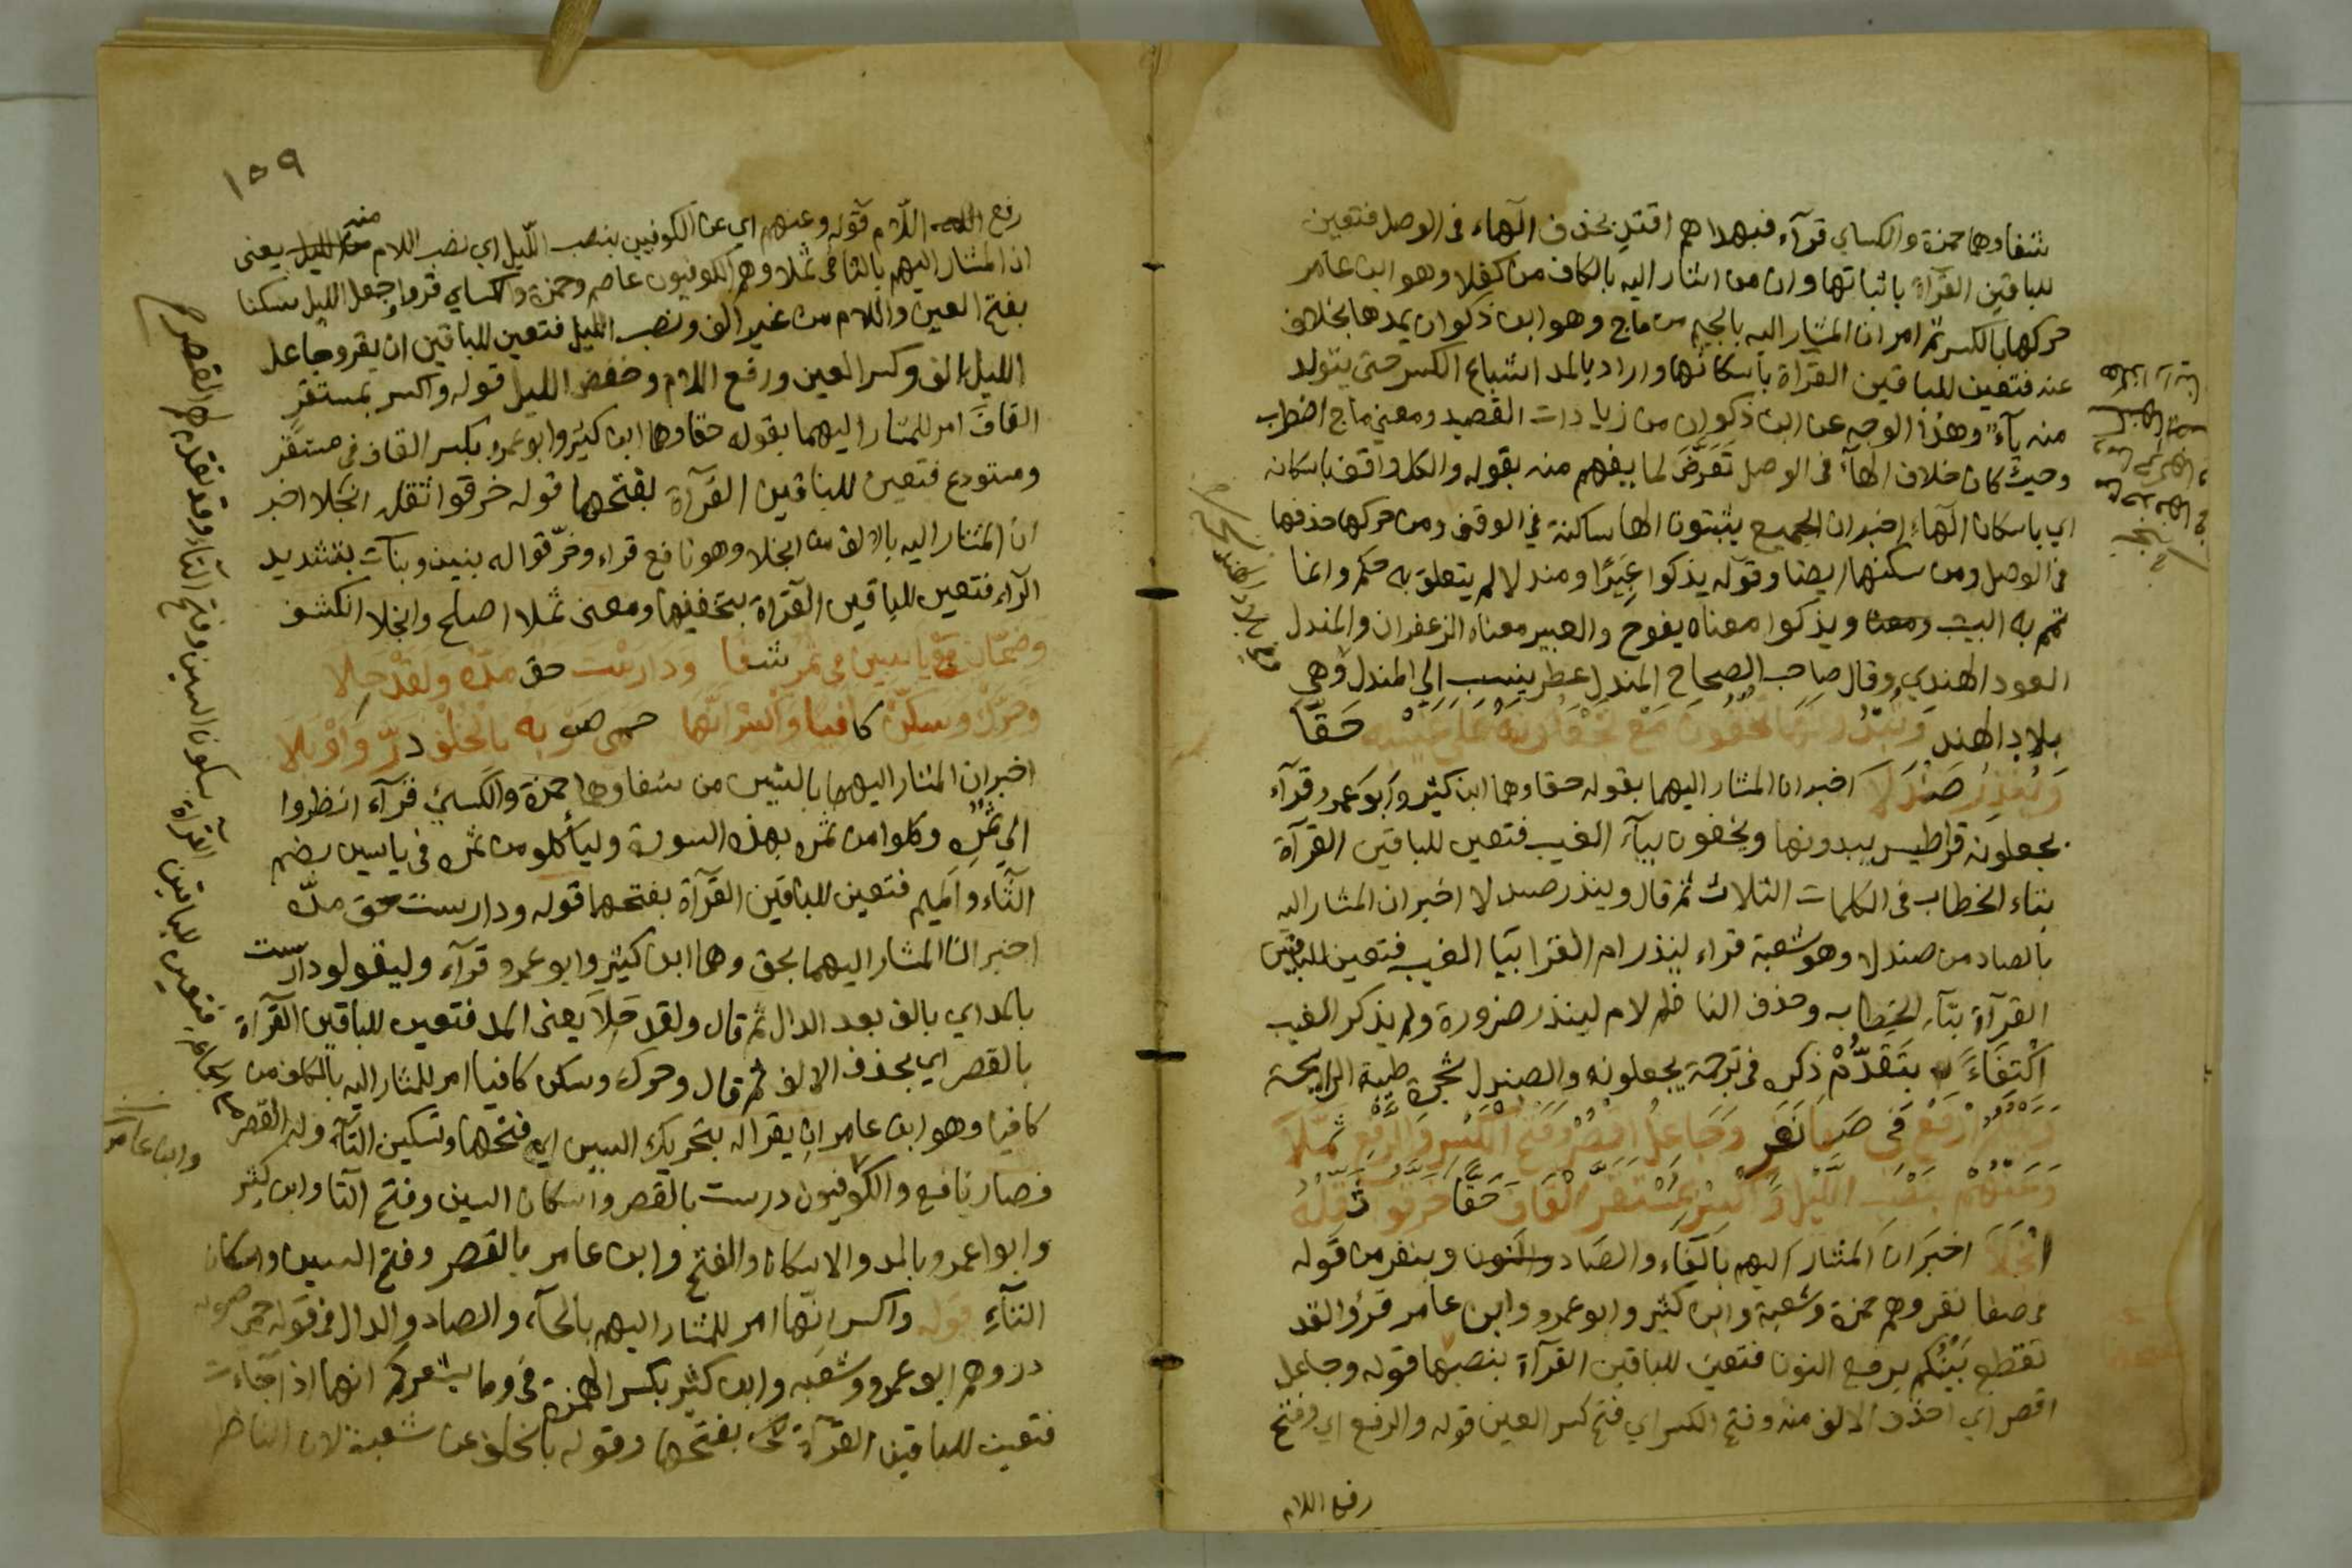 شفا وهما حمزة والكساي قرآء فبهداهم اقتدِ بحذف الهاء فى الوصل فتعين
للباقين القرآة باثباتها وان من اشار اليه بالكاف من كفلا وهو ابن عامر
حركها بالكسر ثم امر ان المشار اليه بالجيم من ماج وهو ابن ذكوان يمدها بخلاف
عنه فتعين للباقين القرآة باسكانها واراد بالمد اشباع الكسر حتى يتولد
منه يآء وهذا الوجه عن ابن ذكوان من زيادات القصيد ومعنى ماج اضطرب
وحيث كان خلاف الهآء فى الوصل تعرّض لما يفهم منه بقوله والكل واقف باسكانه
اي باسكان الهآء اخبر ان الجميع يثبتون الها ساكنة في الوقف ومن حركها حذفها
فى الوصل ومن سكنها ايضا وقوله يذكوا عبيرًا ومندلا لم يتعلق به حكم وانما
تمم به البيت ومعنا ويذكوا معناه يفوح والعبير معناه الزعفران والمندل
العود الهندي وقال صاحب الصحاح المندل عطر ينسب الي المندل وهي
بلاد الهند وتبدونها تخفون مع تجعلونه على غيبه حقا
وينذر صندلا اخبر ان المشار اليهما بقوله حقا وهما ابن كثير وابو عمرو قرآء
يجعلونه قراطيس يبدونها ويخفون بيآء الغيب فتعين للباقين القرآة
بتاء الخطاب فى الكلمات الثلاث ثم قال وينذر صندلا اخبر ان المشار اليه
بالصاد من صندلا وهو شعبة قراء لينذر ام القرا بيا الغيب فتعين للباقين
القرآة بتآء الخطاب وحذف الناظم لام لينذر ضرورة ولم يذكر الغيب
اكتفاء بتقدّم ذكره فى ترجمة يجعلونه والصندل شجرة طيبة الرايحة
وبينكم ارفع فى صفا نفر وجاعل اقصر وفتح الكسر والرفع ثمّلا
وعنهم بنصب الليل واكسر بمستقر القاف حقا خرقوا ثقله
انجلا اخبر ان المشار اليهم بالفاء والصاد والنون وبنفر من قوله
فى صفا نفر وهم حمزة وشعبة وابن كثير وابو عمرو وابن عامر قرؤا لقد
تقطع بينُكم برفع النون فتعين للباقين القرآة بنصبها قوله وجاعل
اقصر اي احذف الالف منه وفتح الكسر اي فتح كسر العين قوله والرفع اي وفتح
رفع اللام
١٥٩
رفع اللام قوله وعنهم اي عن الكوفيين بنصب اللّيل اي نصب اللام منه يعنى
ان المشار اليهم بالثا فى ثملا وهم الكوفيون عاصم وحمزة والكساي قروا وجعل الليل سكنا
بفتح العين واللام من غير الف ونصب الليل فتعين للباقين ان يقرو جاعل
الليل بالف وكسر العين ورفع اللام وخفض الليل قوله واكسر بمستقر
القاف امر للمشار اليهما بقوله حقا وهما ابن كثير وابو عمرو بكسر القاف فى مستقر
ومستودع فتعين للباقين القرآة بفتحها قوله خرقوا ثقله انجلا اخبر
ان المشار اليه بالالف من انجلا وهو نافع قراء وخرّقوا له بنين وبنات بتشديد
الرآء فتعين للباقين القرآة بتخفيفها ومعنى ثملا اصلح وانجلا انكشف
وضمّان مع ياسين فى ثمر شفا ودارست حق مدّه ولقد حلا
وحرّك وسكّن كافيا واكسر انّها حمى صوبه بالخلف درّ واوبلا
اخبر ان المشار اليهما بالشين من شفا وهما حمزة والكسائي قرآء انظروا
الي ثمره وكلوا من ثمره بهذه السورة وليأكلو من ثمره فى ياسين بضم
الثّاء والميم فتعين للباقين القرآة بفتحهما قوله ودارست حق مدّه
اخبر ان المشار اليهما بحق وهما ابن كثير وابو عمرو قرآء وليقولو دارست
بالمد اي بالف بعد الدال ثم قال ولقد حلا يعنى المد فتعين للباقين القرآة
بالقصر اي بحذف الالف ثم قال وحرك وسكن كافيا امر للمشار اليه بالكاف من
كافيا وهو ابن عامر ان يقرا له بتحريك السين اي فتحها وتسكين التآء وله القصر
فصار نافع والكوفيون درست بالقصر واسكان السين وفتح التا وابن كثير
وابوا عمرو بالمد والاسكان والفتح وابن عامر بالقصر وفتح السين واسكان
التآء قوله واكسر انّها امر للمشار اليهم بالحآء والصاد والدال فى قوله حمى صوبه
در وهم ابو عمرو وشعبه وابن كثير بكسر الهمزة فى وما يشعركم انها اذا جاءت
فتعين للباقين القرآة بفتحها وقوله بالخلف عن شعبة لان الناظر
فتعين للباقين القرآة بسكون السين وفتح التاء وقد تقدم لهم القصر
وابن عامر